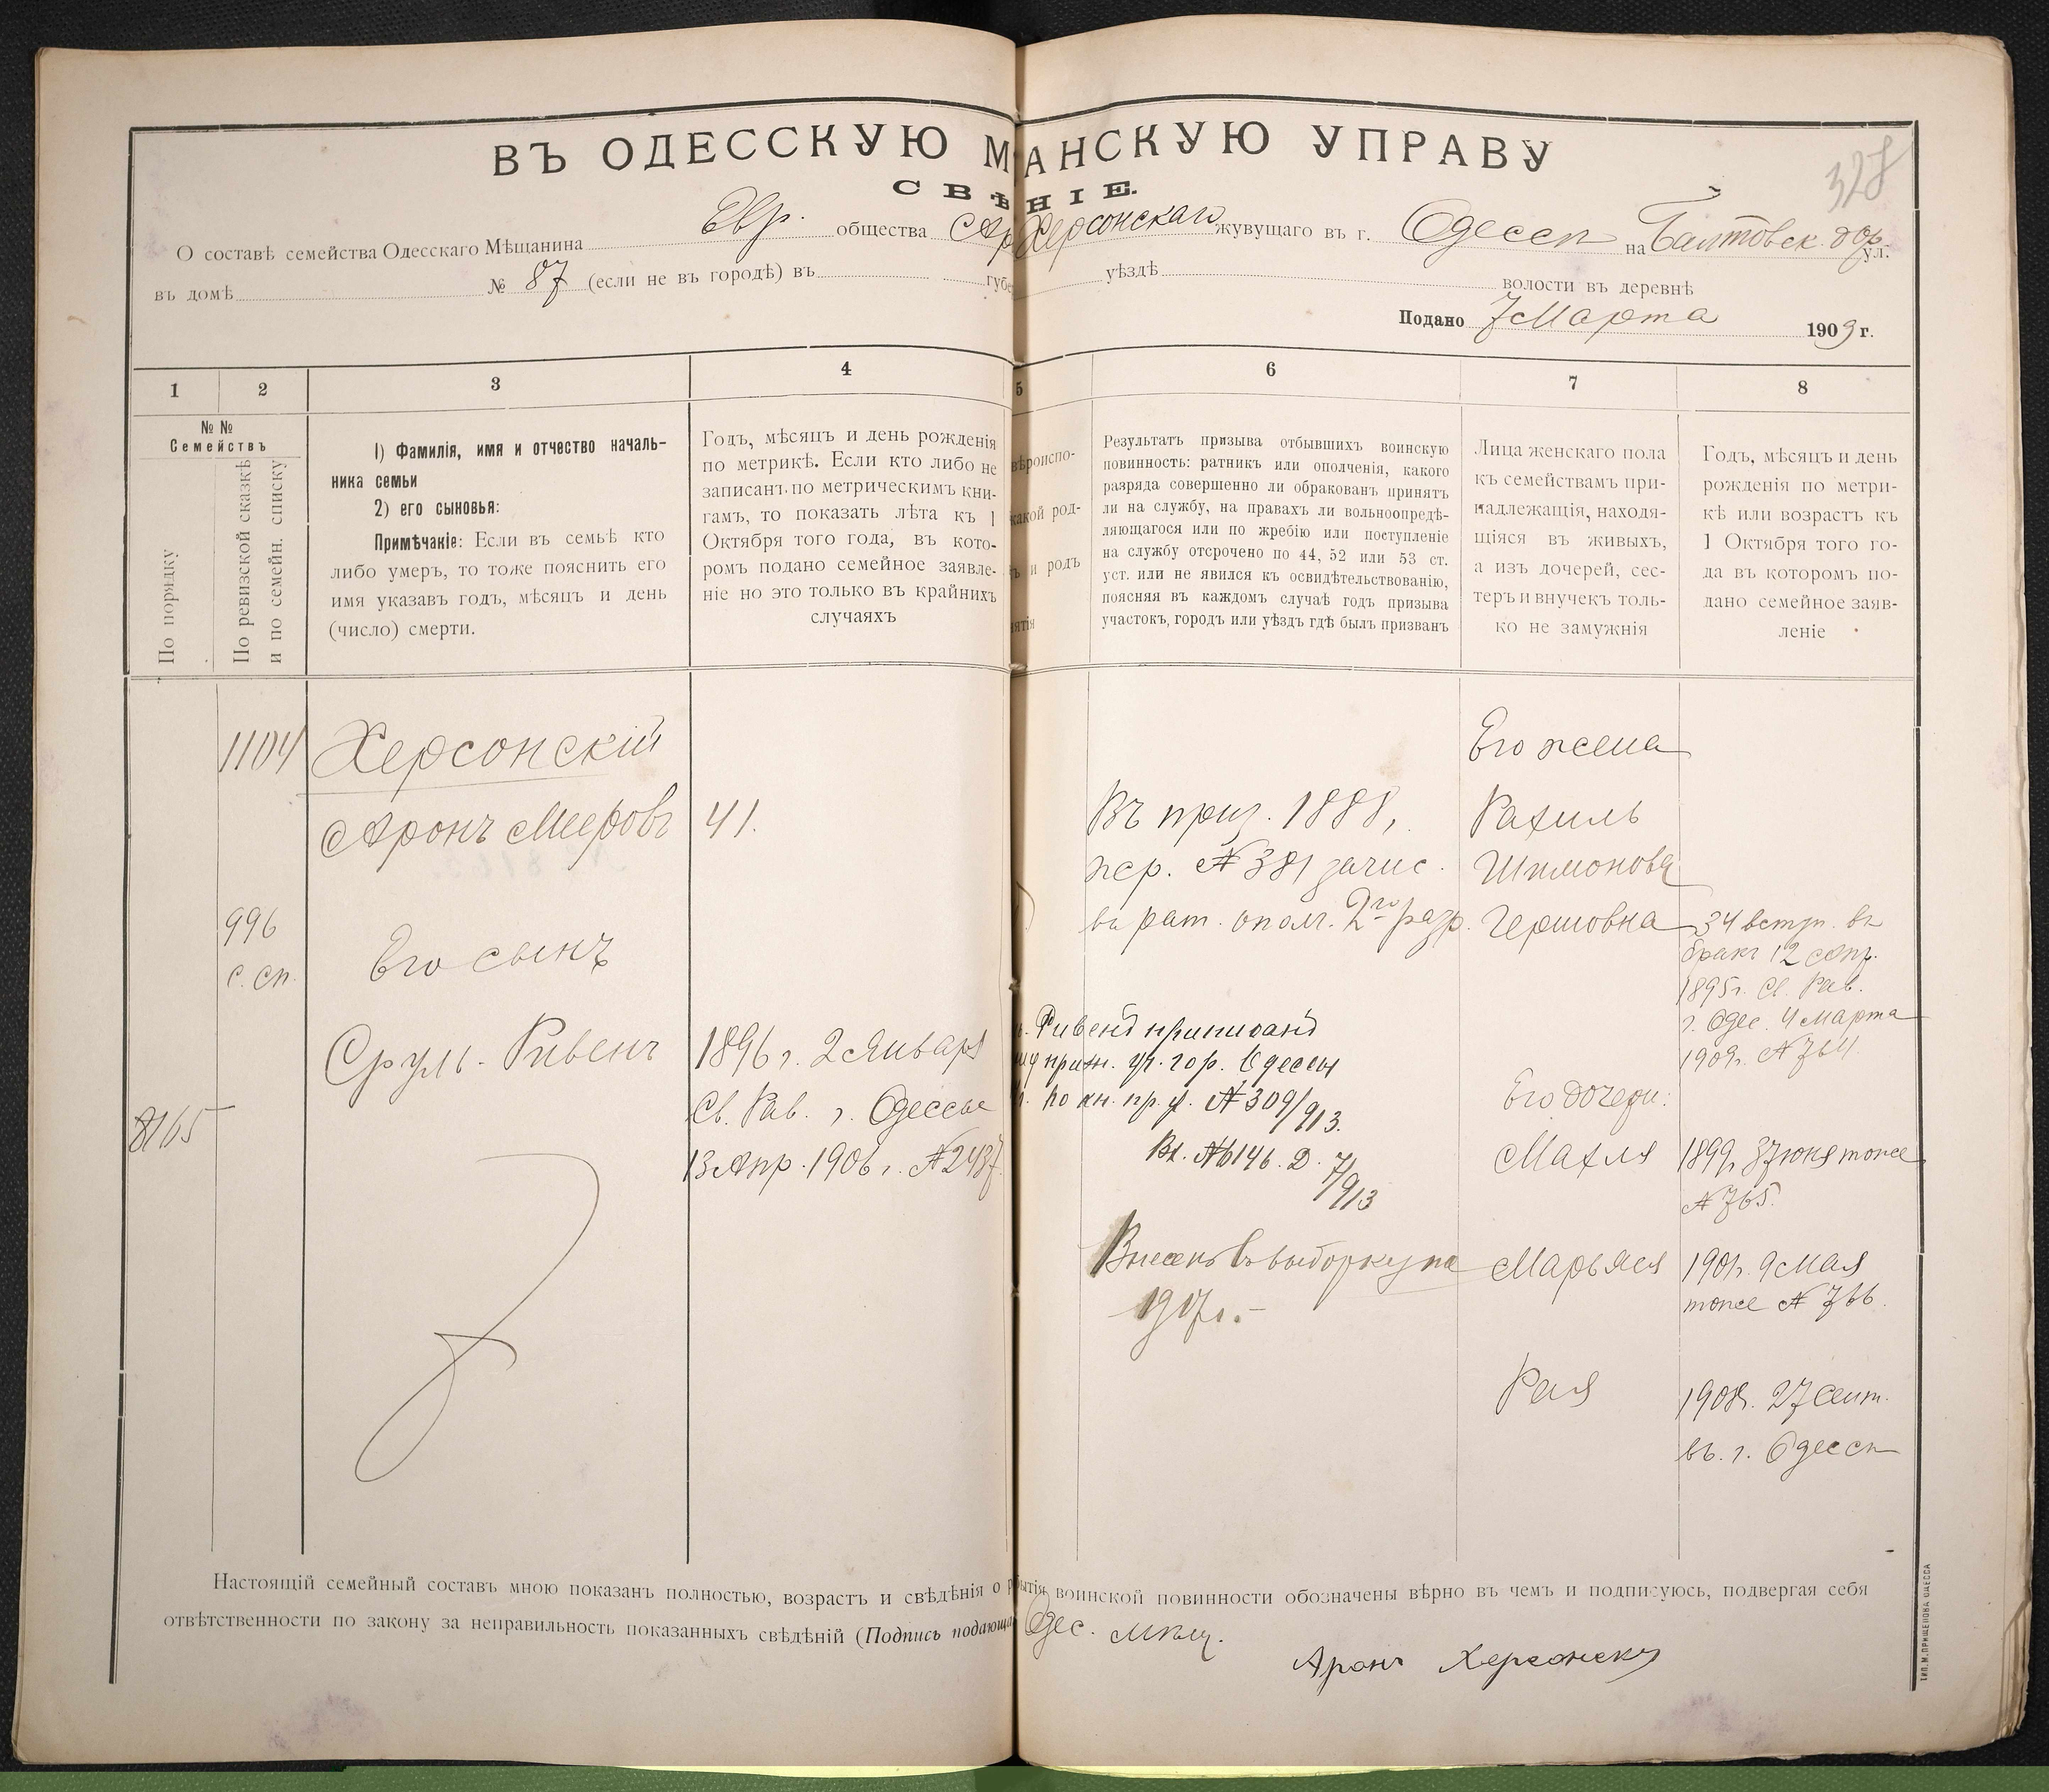 ВЪ ОДЕССКУЮ М АНСКУЮ УПРАВУ
СВѢ НІЕ.
328
О составѣ семейства Одесскаго Мѣщанина Евр. общества Ар Херсонскаго жувущаго въ г. Одессѣ на Балтовск. дор ул.
въ домѣ № 87 (если не въ городѣ) въ губе уѣздѣ волости въ деревнѣ
Подано 7 Марта 1909 г.
1 2 3 4 5 6 7 8
№ №
Семействъ
По порядку
По ревизской сказкѣ
и по семейн. списку
1) Фамилія, имя и отчество началь-
ника семьи
2) его сыновья:
Примѣчакіе: Если въ семьѣ кто
либо умеръ, то тоже пояснить его
имя указавъ годъ, мѣсяцъ и день
(число) смерти.
Годъ, мѣсяцъ и день рожденія
по метрикѣ. Если кто либо не
записанъ по метрическимъ кни-
гамъ, то показать лѣта къ 1
Октября того года, въ кото-
ромъ подано семейное заявле-
ніе но это только въ крайнихъ
случаяхъ
вѣроиспо-
какой род-
ъ и родъ
нятія
Результатъ призыва отбывшихъ воинскую
повинность: ратникъ или ополченія, какого
разряда совершенно ли обракованъ принятъ
ли на службу, на правахъ ли вольноопредѣ-
ляющагося или по жребію или поступленіе
на службу отсрочено по 44, 52 или 53 ст.
уст. или не явился къ освидѣтельствованію,
поясняя въ каждомъ случаѣ годъ призыва
участокъ, городъ или уѣздъ гдѣ былъ призванъ
Лица женскаго пола
къ семействамъ при-
надлежащія, находя-
щіяся въ живыхъ,
а изъ дочерей, сес-
теръ и внучекъ толь-
ко не замужнія
Годъ, мѣсяцъ и день
рожденія по метри-
кѣ или возрастъ къ
1 Октября того го-
да въ которомъ по-
дано семейное заяв-
леніе
1104 Херсонскій
Аронъ Мееровъ 41.
996
с. сп.
Его сынъ
Сруль-Ривенъ
1896 г. 2 Января
Св. Рав. г. Одессы
13 Апр. 1906 г. № 2437.
8165
Въ приз. 1888,
жр. № 381 зачис.
въ рат. опол. 2го разр.
Ривенъ приписанъ
приз. уч. гор. Одессы
по кн. пр. у. № 309/913.
Вх. № 6146. Д. 7/913
Внесенъ въ выборку на
1917 г.
Его жена
Рахиль
Шимонова
Гершовна
34 вступ. въ
бракъ 12 сент.
1895 г. Св. Рав.
г. Одес. 4 Марта
1909 г. № 764
Его дочери:
Махля 1899 г. 3 Іюня тоже
№ 765.
Марьяся 1901 г. 9 Мая
тоже № 766.
Рая 1908 г. 27 Сент.
въ. г. Одессѣ
Настоящій семейный составъ мною показанъ полностью, возрастъ и свѣдѣнія о бытія воинской повинности обозначены вѣрно въ чемъ и подписуюсь, подвергая себя
отвѣтственности по закону за неправильность показанныхъ свѣдѣній (Подпись подающа Одес. мѣщ.
Аронъ Херсонскій
ТИП. М. ПРИЩЕПОВА ОДЕССА